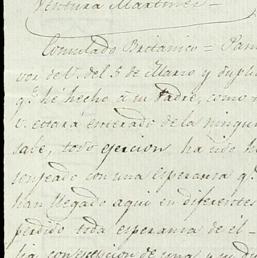 Ventura Martinez
Consulado Britanico = Pana
vor de V. del 5 de Marzo y dupli
q.e hé hecho á su Padre, como
V. estará enterado de la ningun
sale, todo ejercion ha sido
sonjeado con una esperanza q.
han llegado aqui en diferentes
perdido toda esperanza de el-
lig. contestacion de una y